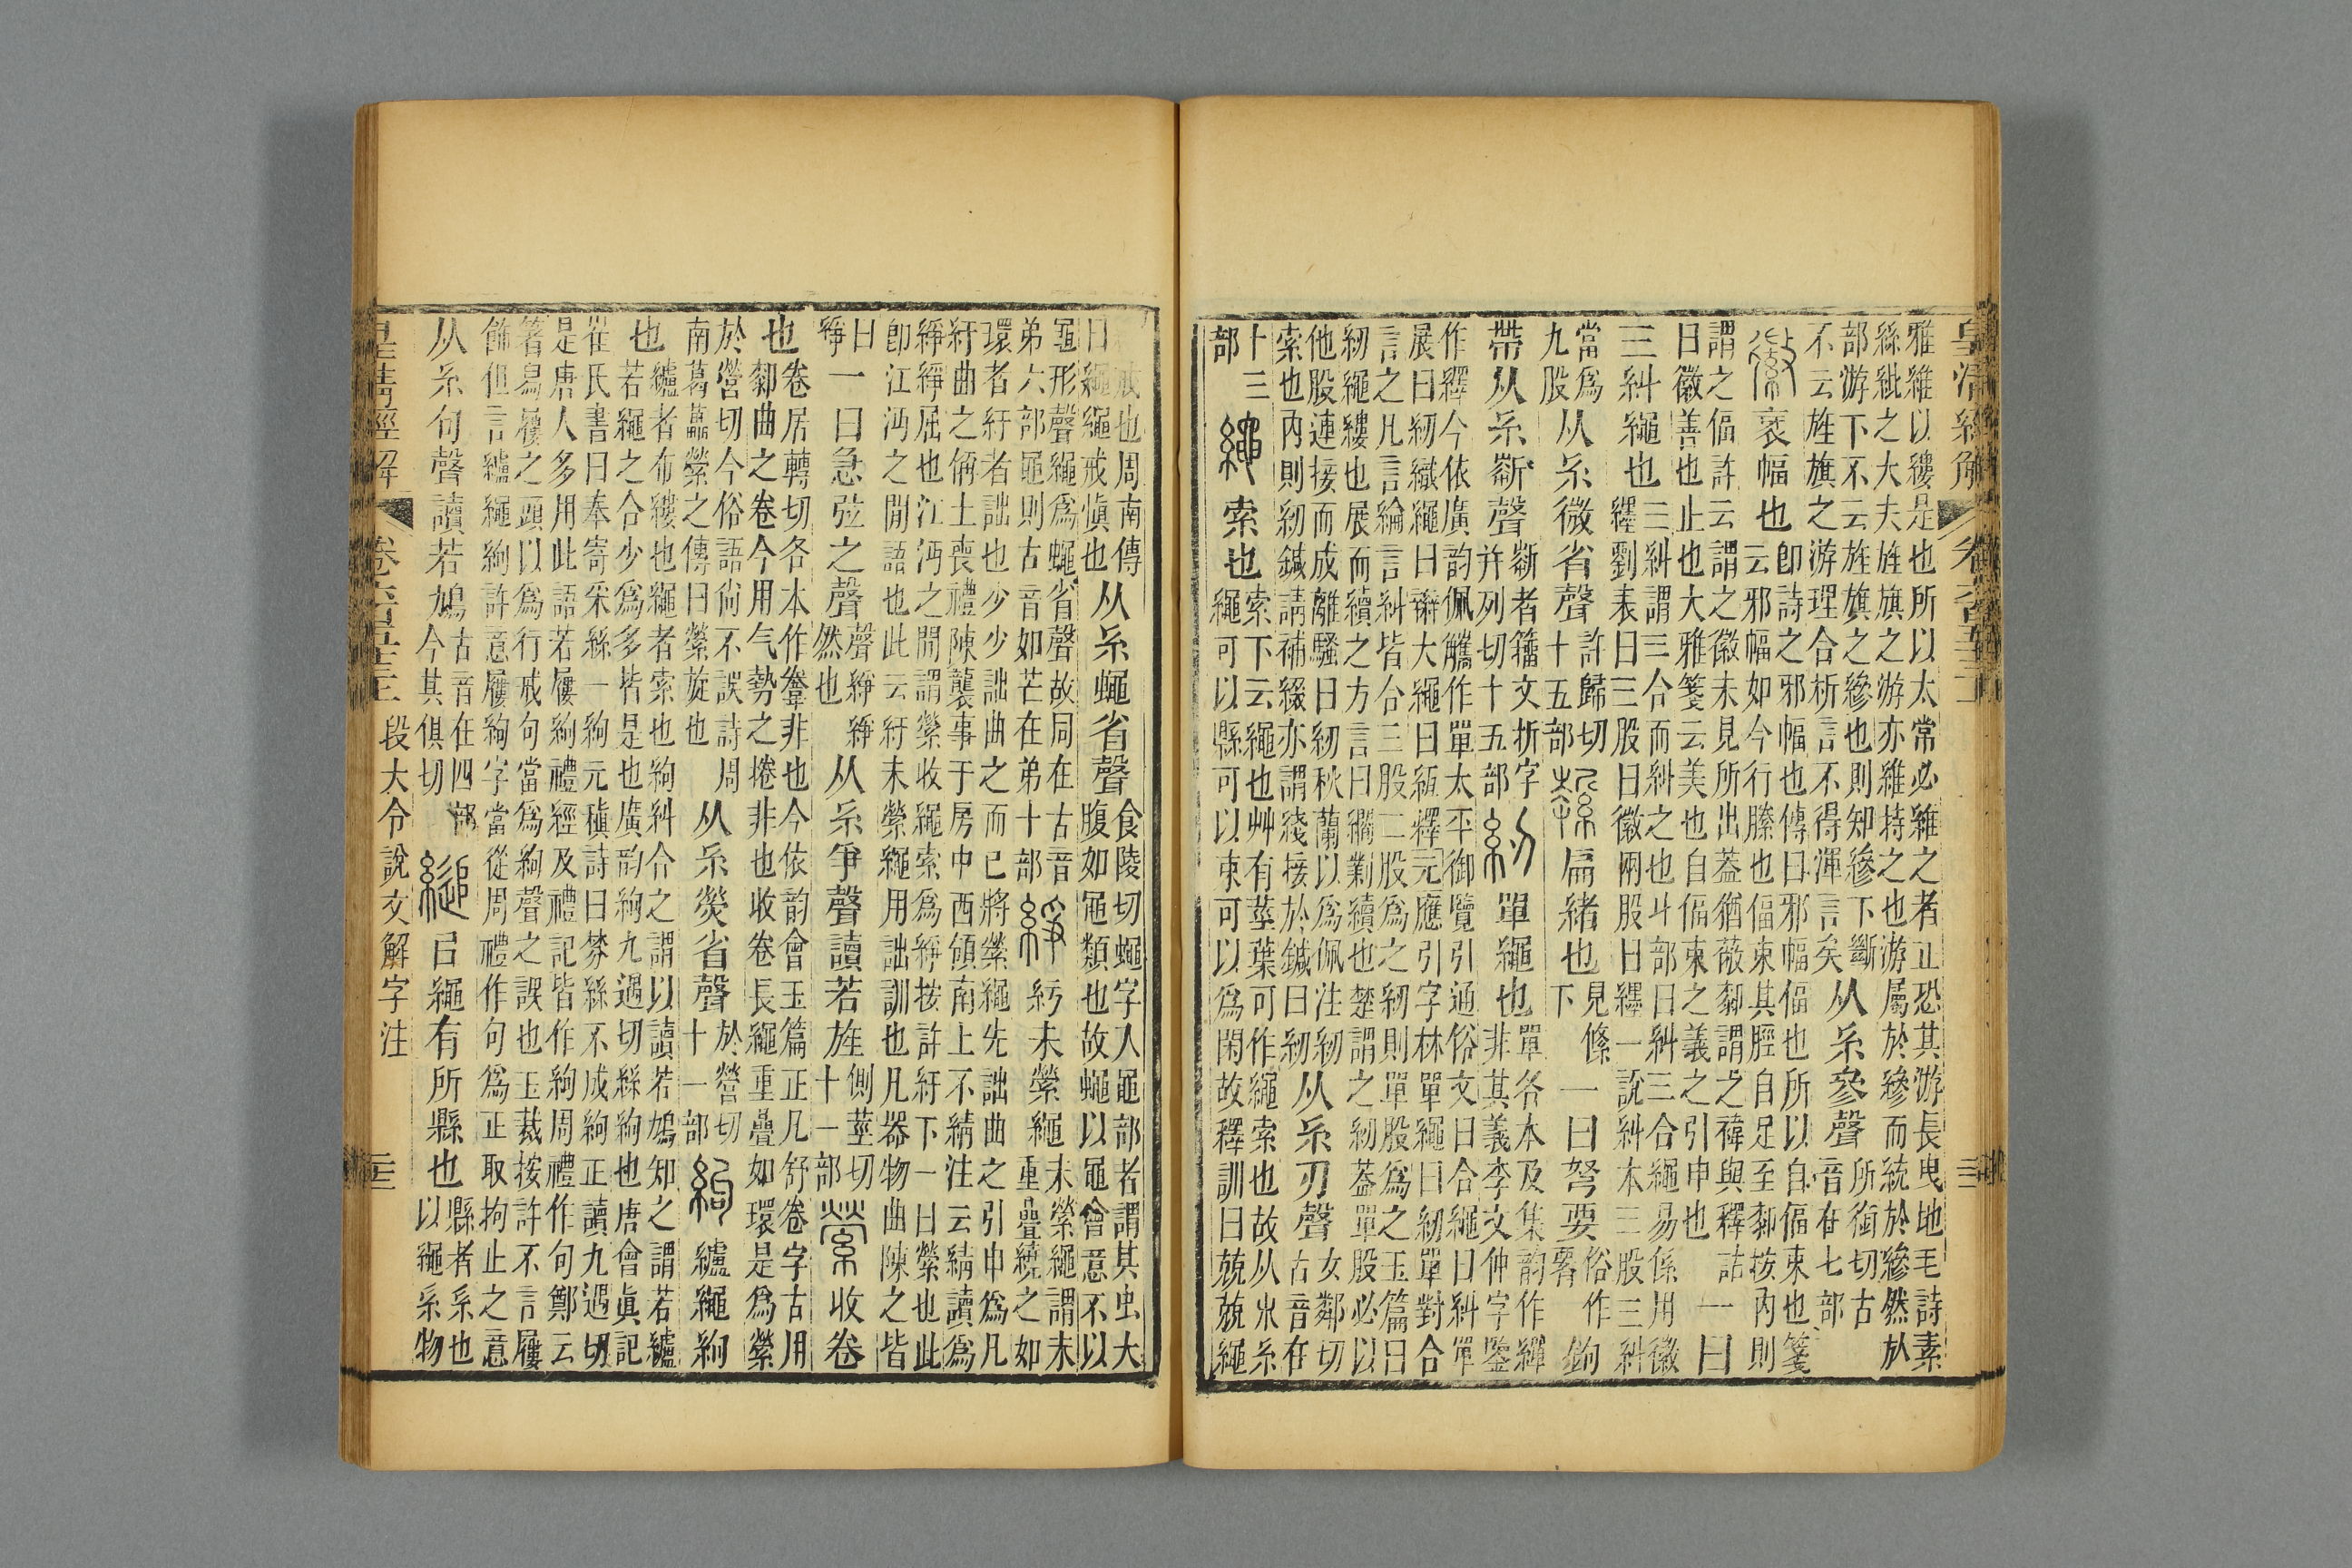 皇清經解 卷六百五十三 三
雅維以縷是也所以太常必維之者止恐其游長曳地毛詩素
絲紕之大夫旌旗之游亦維持之也游屬於縿而統於縿然於
部游下不云旌旗之縿也則知縿下斷
不云旌旗之游理合析言不得渾言矣
从糸參聲
所銜切古
音在七部
徽衺幅也
卽詩之邪幅也傳曰邪幅偪也所以自偪束也箋
云邪幅如今行縢也偪束其脛自足至䣛按內則
謂之偪許云謂之徽未見所出葢猶薇䣛謂之褘與釋詁
曰徽善也止也大雅箋云美也自偪束之義之引申也
一曰
三糾繩也
三糾謂三合而糾之也丩部曰糾三合繩易係用徽
纆劉表曰三股曰徽兩股曰纆一說糾本三股三糾
當爲
九股
从糸微省聲
許歸切
十五部
扁緒也
見絛
下
一曰弩要
俗作
䙅
鉤
帶从糸𣂚聲
𣂚者籒文折字
并列切十五部
紉單繩也
單各本及集韵作繟
非其義李文仲字鑒
作繹今依廣韵佩觿作單太平御覽引通俗文曰合繩曰糾單
展曰紉織繩曰辮大繩曰縆釋元應引字林單繩曰紉單對合
言之凡言綸言糾皆合三股二股爲之紉則單股爲之玉篇曰
紉繩縷也展而續之方言曰擱劋續也楚謂之紉葢單股必以
他股連接而成離騷曰紉秋蘭以爲佩注紉
索也內則紉鍼請補綴亦謂綫接於鍼曰紉
从糸刃聲
女鄰切
古音在
十三
部
繩索也
索下云繩也艸有莖葉可作繩索也故从𣎵糸
繩可以縣可以束可以爲閑故釋訓曰兢兢繩
戒也周南傳
曰繩繩戒慎也
从糸蠅省聲
食陵切蠅字入黽部者謂其虫大
腹如黽類也故蠅以黽會意不以
黽形聲繩爲蠅省聲故同在古音
弟六部黽則古音如芒在弟十部
䋫紆未縈繩
未縈繩謂未
重疊繞之如
環者紆者詘也少少詘曲之而已將縈繩先詘曲之引申爲凡
紆曲之偁士喪禮陳襲事于房中西領南上不綪注云綪讀爲
䋫䋫屈也江沔之閒謂縈收繩索爲䋫按許紆下一曰縈也此
卽江沔之閒語也此云紆未縈繩用詘訓也凡器物曲陳之皆
曰
䋫
一曰急弦之聲
聲䋫䋫
然也
从糸爭聲讀若旌
側莖切
十一部
縈收卷
也
卷居轉切各本作𢍏非也今依韵會玉篇正凡舒卷字古用
䣛曲之卷今用气勢之捲非也收卷長繩重疊如環是爲縈
於營切今俗語尙不誤詩周
南葛藟縈之傳曰縈旋也
从糸熒省聲
於營切
十一部
絇纑繩絇
也
纑者布縷也繩者索也絇糾合之謂以讀若鳩知之謂若纑
若繩之合少爲多皆是也廣韵絇九遇切絲絇也唐會眞記
崔氏書曰奉寄采絲一絇元稹詩曰棼絲不成絇正讀九遇切
是唐人多用此語若屨絇禮經及禮記皆作絇周禮作句鄭云
箸舄屨之頭以爲行戒句當爲絇聲之誤也玉裁按許不言屨
飾但言纑繩絇許意屨絇字當從周禮作句爲正取拘止之意
从糸句聲讀若鳩
古音在四部
今其俱切
縋㠯繩有所縣也
縣者系也
以繩系物
皇清經解 卷六百五十三 段大令說文解字注 三